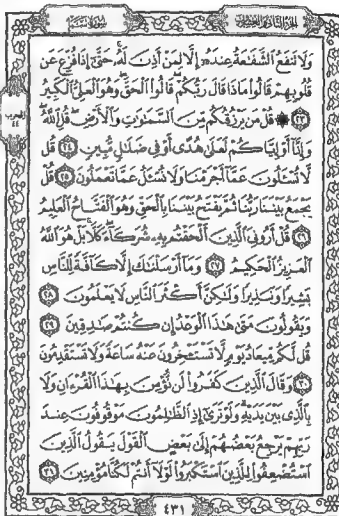 الجزء الثاني والعشرون
سورة سبأ
ولا تنفع الشفاعة عنده إلا لمن أذن له حتى إذا فزع عن
قلوبهم قالوا ماذا قال ربكم قالوا الحق وهو العلي الكبير
٢٣ ۞ قل من يرزقكم من السموات والأرض قل الله
وإنا أو إياكم لعلى هدى أو في ضلال مبين ٢٤ قل
لا تسئلون عما أجرمنا ولا نسئل عما تعملون ٢٥ قل
يجمع بيننا ربنا ثم يفتح بيننا بالحق وهو الفتاح العليم
٢٦ قل أروني الذين ألحقتم به شركاء كلا بل هو الله
العزيز الحكيم ٢٧ وما أرسلناك إلا كافة للناس
بشيرا ونذيرا ولكن أكثر الناس لا يعلمون ٢٨
ويقولون متى هذا الوعد إن كنتم صادقين ٢٩
قل لكم ميعاد يوم لا تستئخرون عنه ساعة ولا تستقدمون
٣٠ وقال الذين كفروا لن نؤمن بهذا القرءان ولا
بالذي بين يديه ولو ترى إذ الظالمون موقوفون عند
ربهم يرجع بعضهم إلى بعض القول يقول الذين
استضعفوا للذين استكبروا لولا أنتم لكنا مؤمنين ٣١
٤٣١